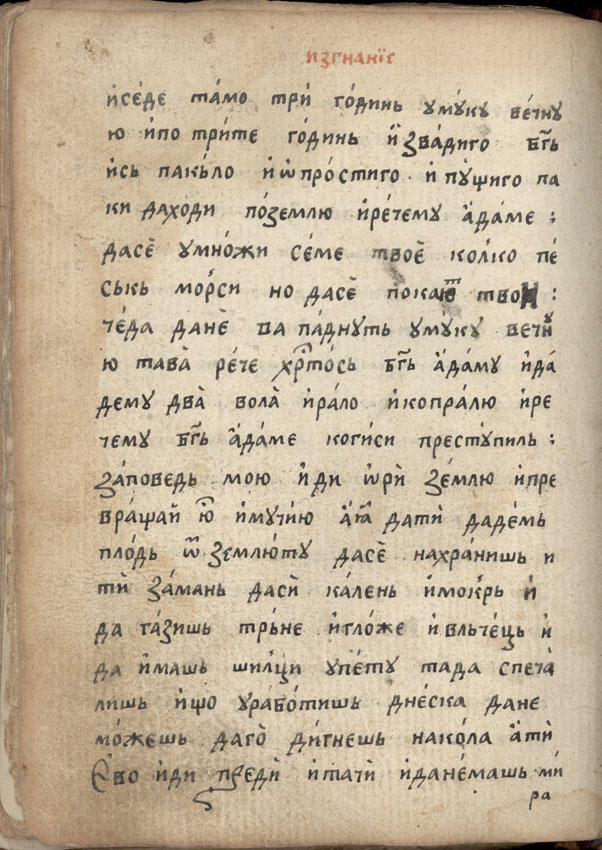 изгнанїе
и҆се́де та́мо три҆ го́динь умꙋ́кꙋ ве́чнꙋ
ю и҆по три́те го́динь и҆зва́диго бг҃ь
и҆сь пакь́ло и҆ѡ҆про́стиго и҆пꙋ́щиго па
ки даходи по́землю и҆ре́чемꙋ а҆да́ме :
дасѐ умно́жи се́ме твоѐ колко пе́
ськь мо́рси но дасѐ покаѥт твои :
че́да данѐ ва па́днꙋть умꙋкꙋ вечнꙋ
ю тава̀ ре́че хрⷭ҇то́сь бг҃ь а҆да́мꙋ и҆да́
демꙋ два̀ вола̀ и҆ра́ло и҆копра́лю и҆ре
чемꙋ бг҃ь а҆да́ме когиси престꙋпиль :
за́поведь мою и҆ди ѡ҆рѝ зе́млю и҆пре
вра́щай ю҆ и҆мꙋчи́ю а҆га дати̇ даде́мь
пло́дь ѿ землютꙋ дасѐ нахра́нишь и
ти̇ за́мань даси̇ ка́лень и҆мо́крь и҆
да га́зишь трь́не и҆гло́же и҆вльче́ць и҆
да и҆машь шилци упе́тꙋ тада спеча̀
лишь и҆що ура́бо́тишь дне́ска дане
мо́жешь даго̀ ди́гнешь накола а҆ти̇
Ево и҆ди преди̇ и҆тачи̇ и҆дане́машь ми́
ра